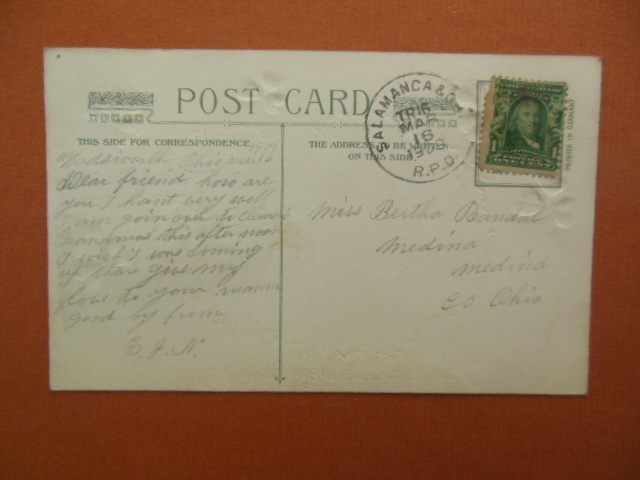 POST CARD
THIS SIDE FOR CORRESPONDENCE.
THE ADDRESS TO BE WRITTEN
ON THIS SIDE
SALAMANCA &
TR16
MAR
16
R.P.O.
PRINTED IN GERMANY
Wadsworth Ohio mar 16
Dear friend how are
you I hant very well
I am goin over to
Grandmas this after noon
I wish I was coming
up thare give my
love to your mama
good by from
E. J. N.
Miss Bertha
Medina
medina
co Ohio